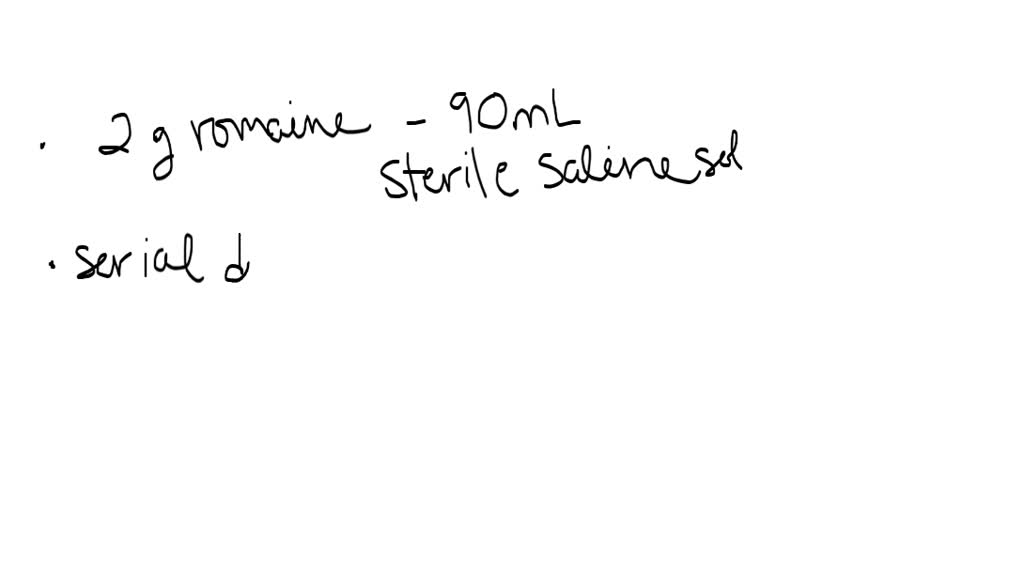 · 2 g romaine - 90mL
sterile saline sol
· serial d